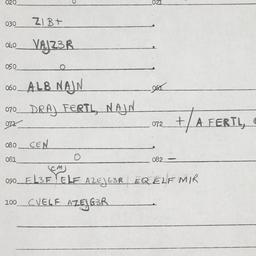 020 021
030 ZIB+
040 VAJZ3R
050 O
060 ALB NAJN 061
070 DRAJ FERTL, NAJN
072 072 +/A FERTL,
080 CEN
081 O 082 —
CM)
090 EL3F ELF AZEJG3R EQ ELF MIR
100 CVELF AZEJG3R